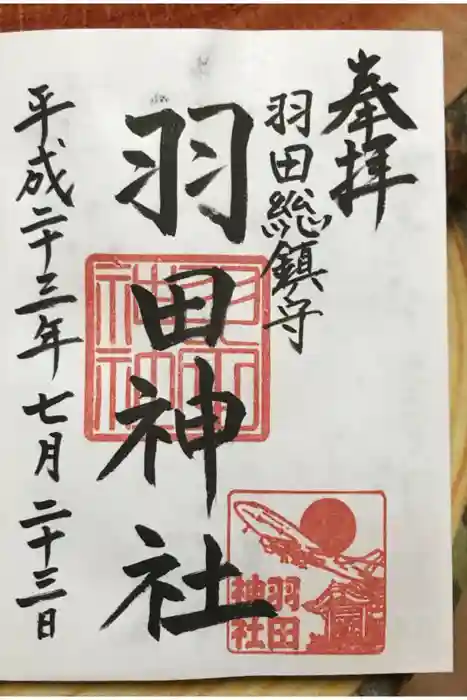 奉拝
羽田総鎮守
羽田神社
平成二十三年七月二十三日
羽田
神社